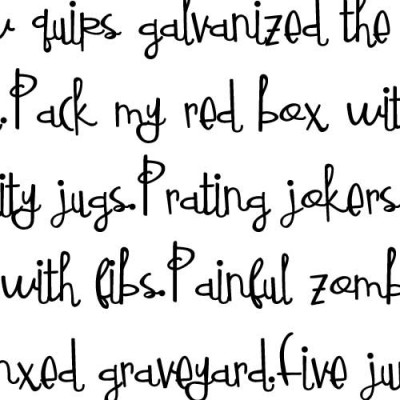 quips galvanized the
.Pack my red box wit
ity jugs.Prating jokers
with fibs.Painful zomb
nxed graveyard.Five ju